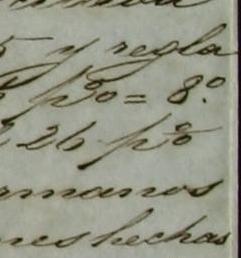 5 y regla
p%o = 8.o
26 p%o
rmanos
nes hechas